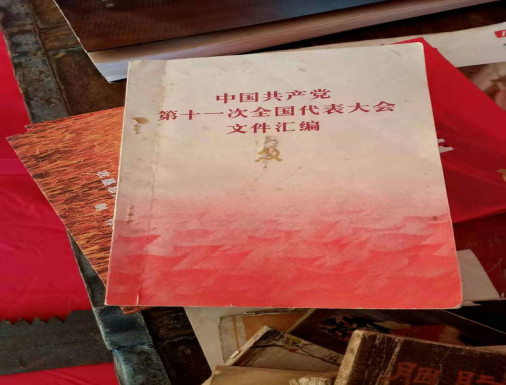 中国共产党
第十一次全国代表大会
文件汇编